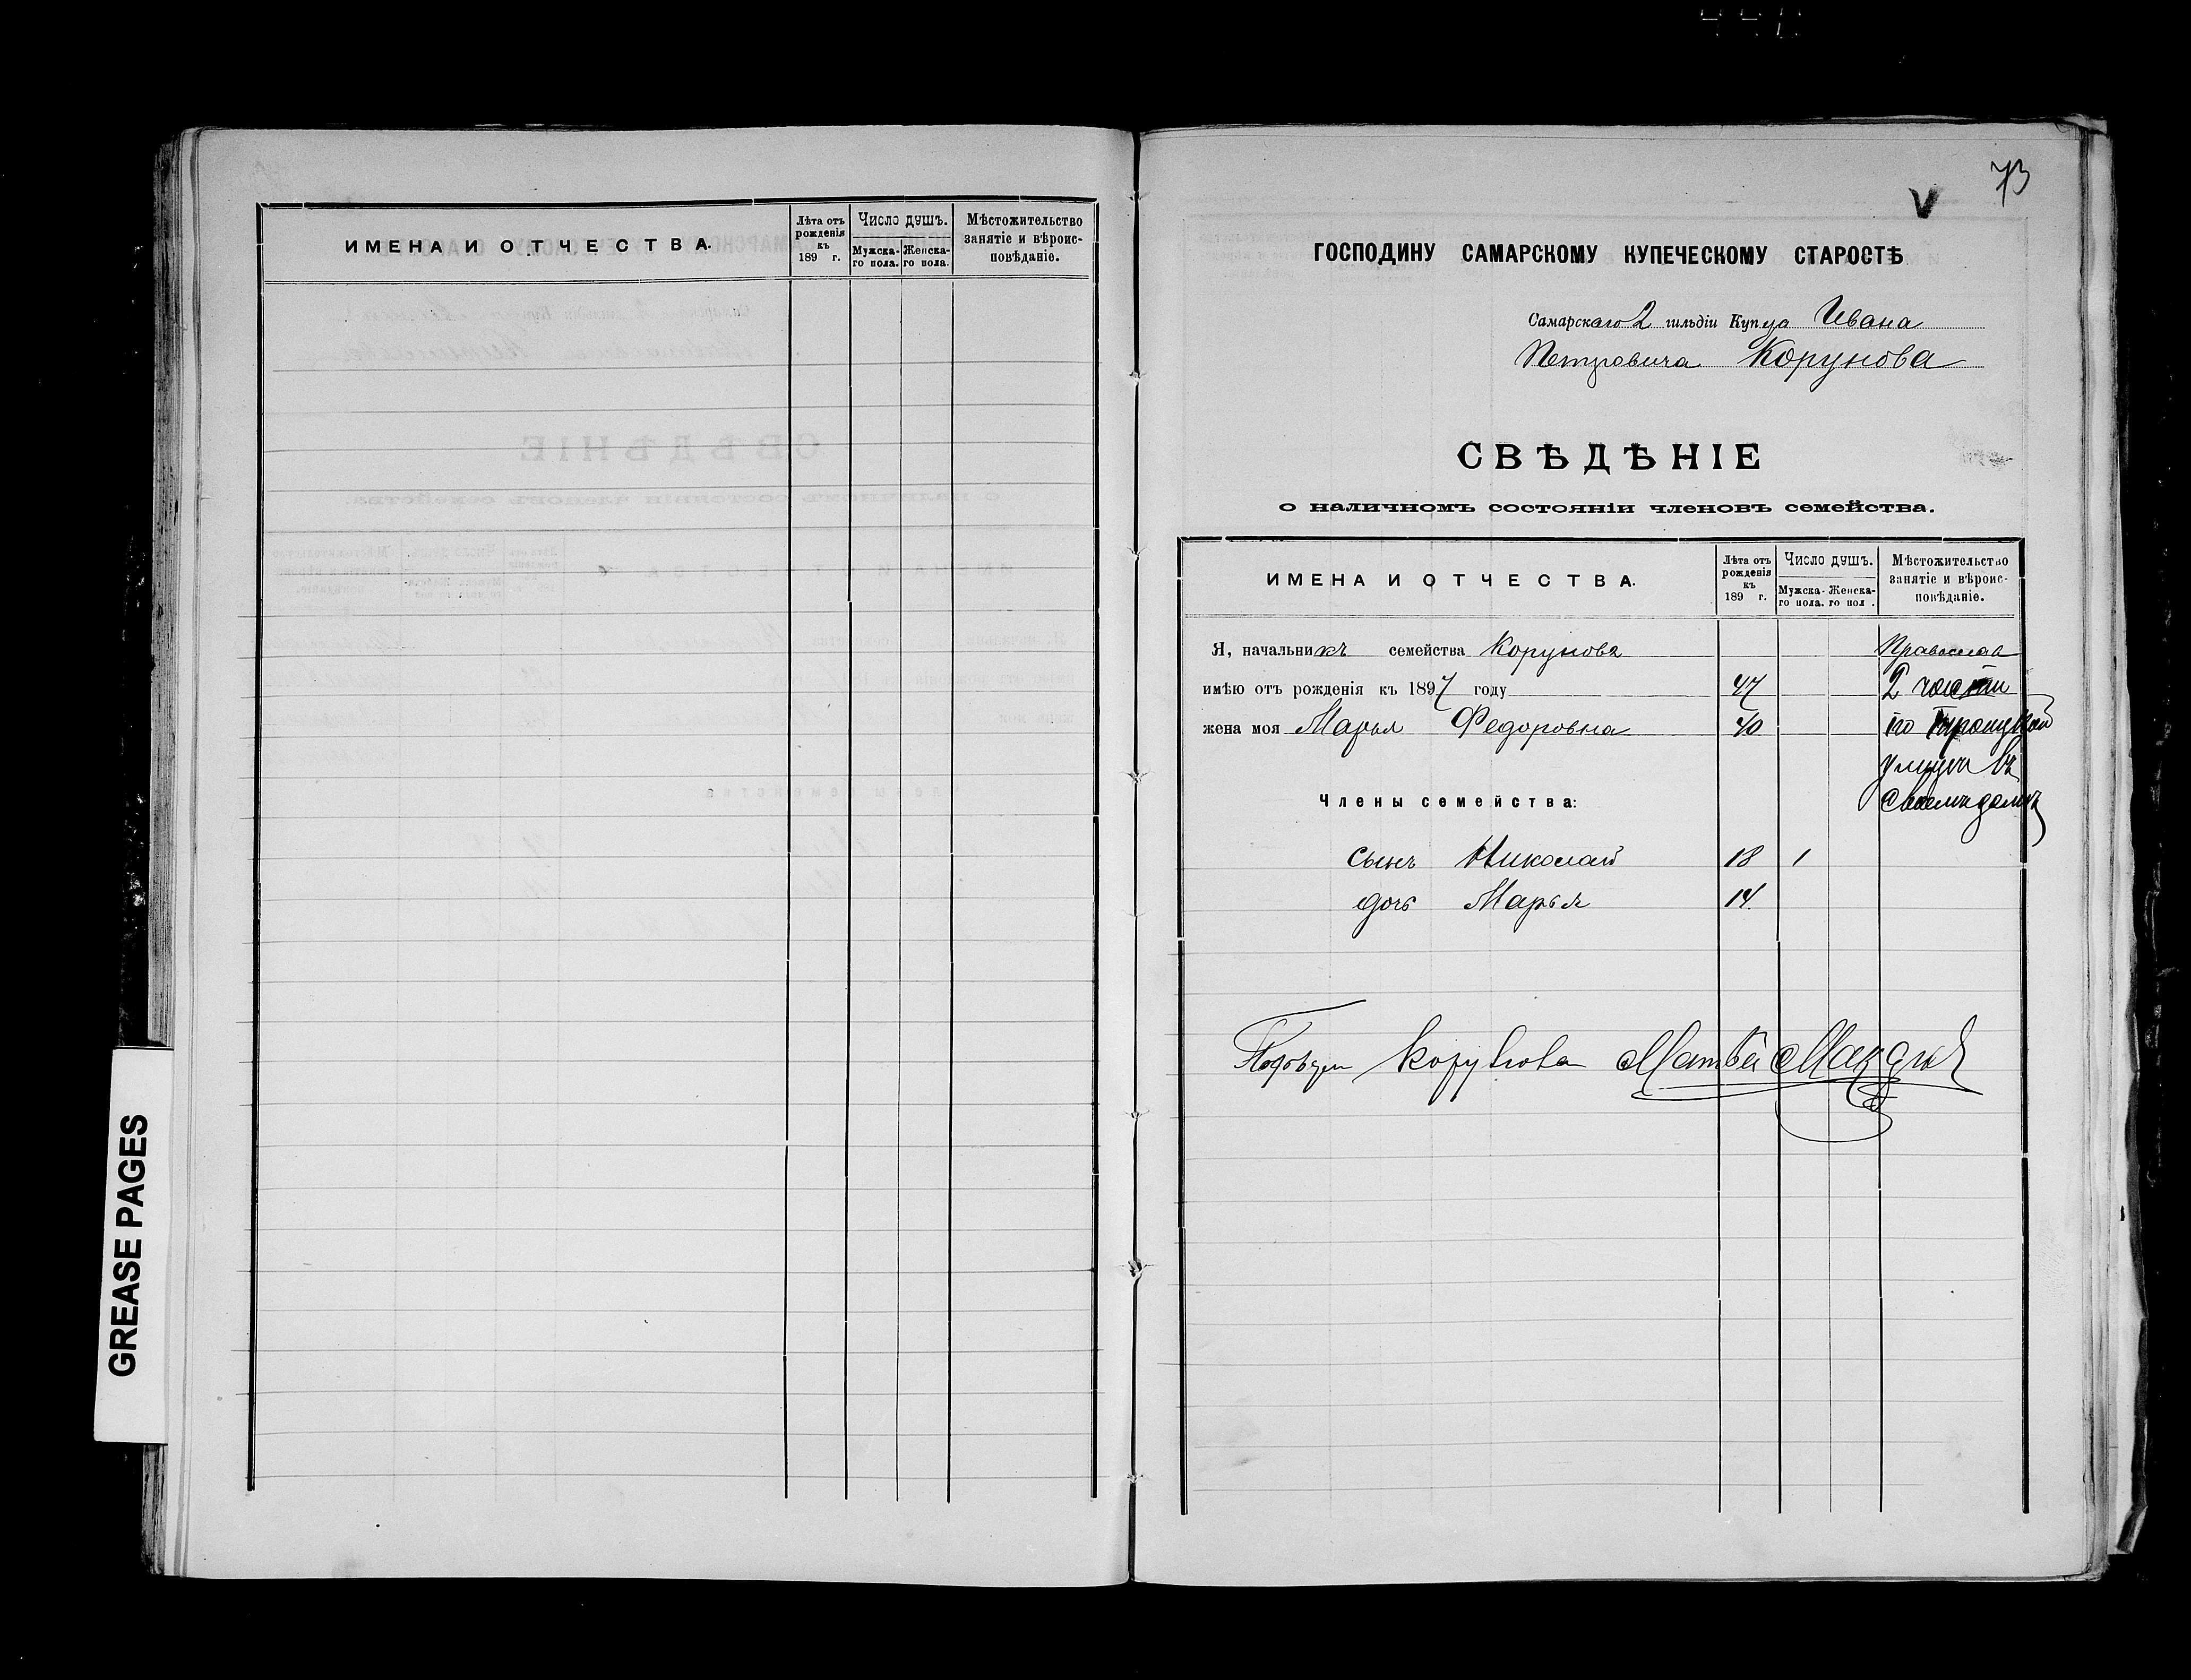 ИМЕНА И ОТЧЕСТВА.
Лѣта отъ рожденія къ 189 г.
Число душъ.
Мужска-го пола.
Женска-го пола.
Мѣстожительство занятіе и вѣроис-повѣданіе.
GREASE PAGES
73
V
ГОСПОДИНУ САМАРСКОМУ КУПЕЧЕСКОМУ СТАРОСТѢ
Самарскаго 2 гильдіи Купца Ивана
Петровича Корунова
СВѢДѢНІЕ
о наличномъ состояніи членовъ семейства.
ИМЕНА И ОТЧЕСТВА.
Лѣта отъ рожденія къ 189 г.
Число душъ.
Мужска-го пола.
Женска-го пол.
Мѣстожительство занятіе и вѣроис-повѣданіе.
Я, начальникъ семейства Коруновъ Православ
имѣю отъ рожденія къ 1897 году 47 2 части
жена моя Марья Федоровна 40 по Троицкой
улицы въ
Члены семейства: своемъ домѣ
сынъ Николай 18 1
дочь Марья 14.
Корунова Матвей